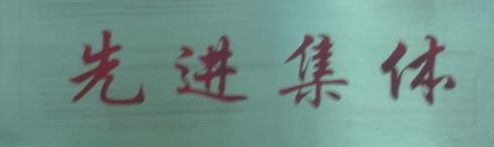 先进集体